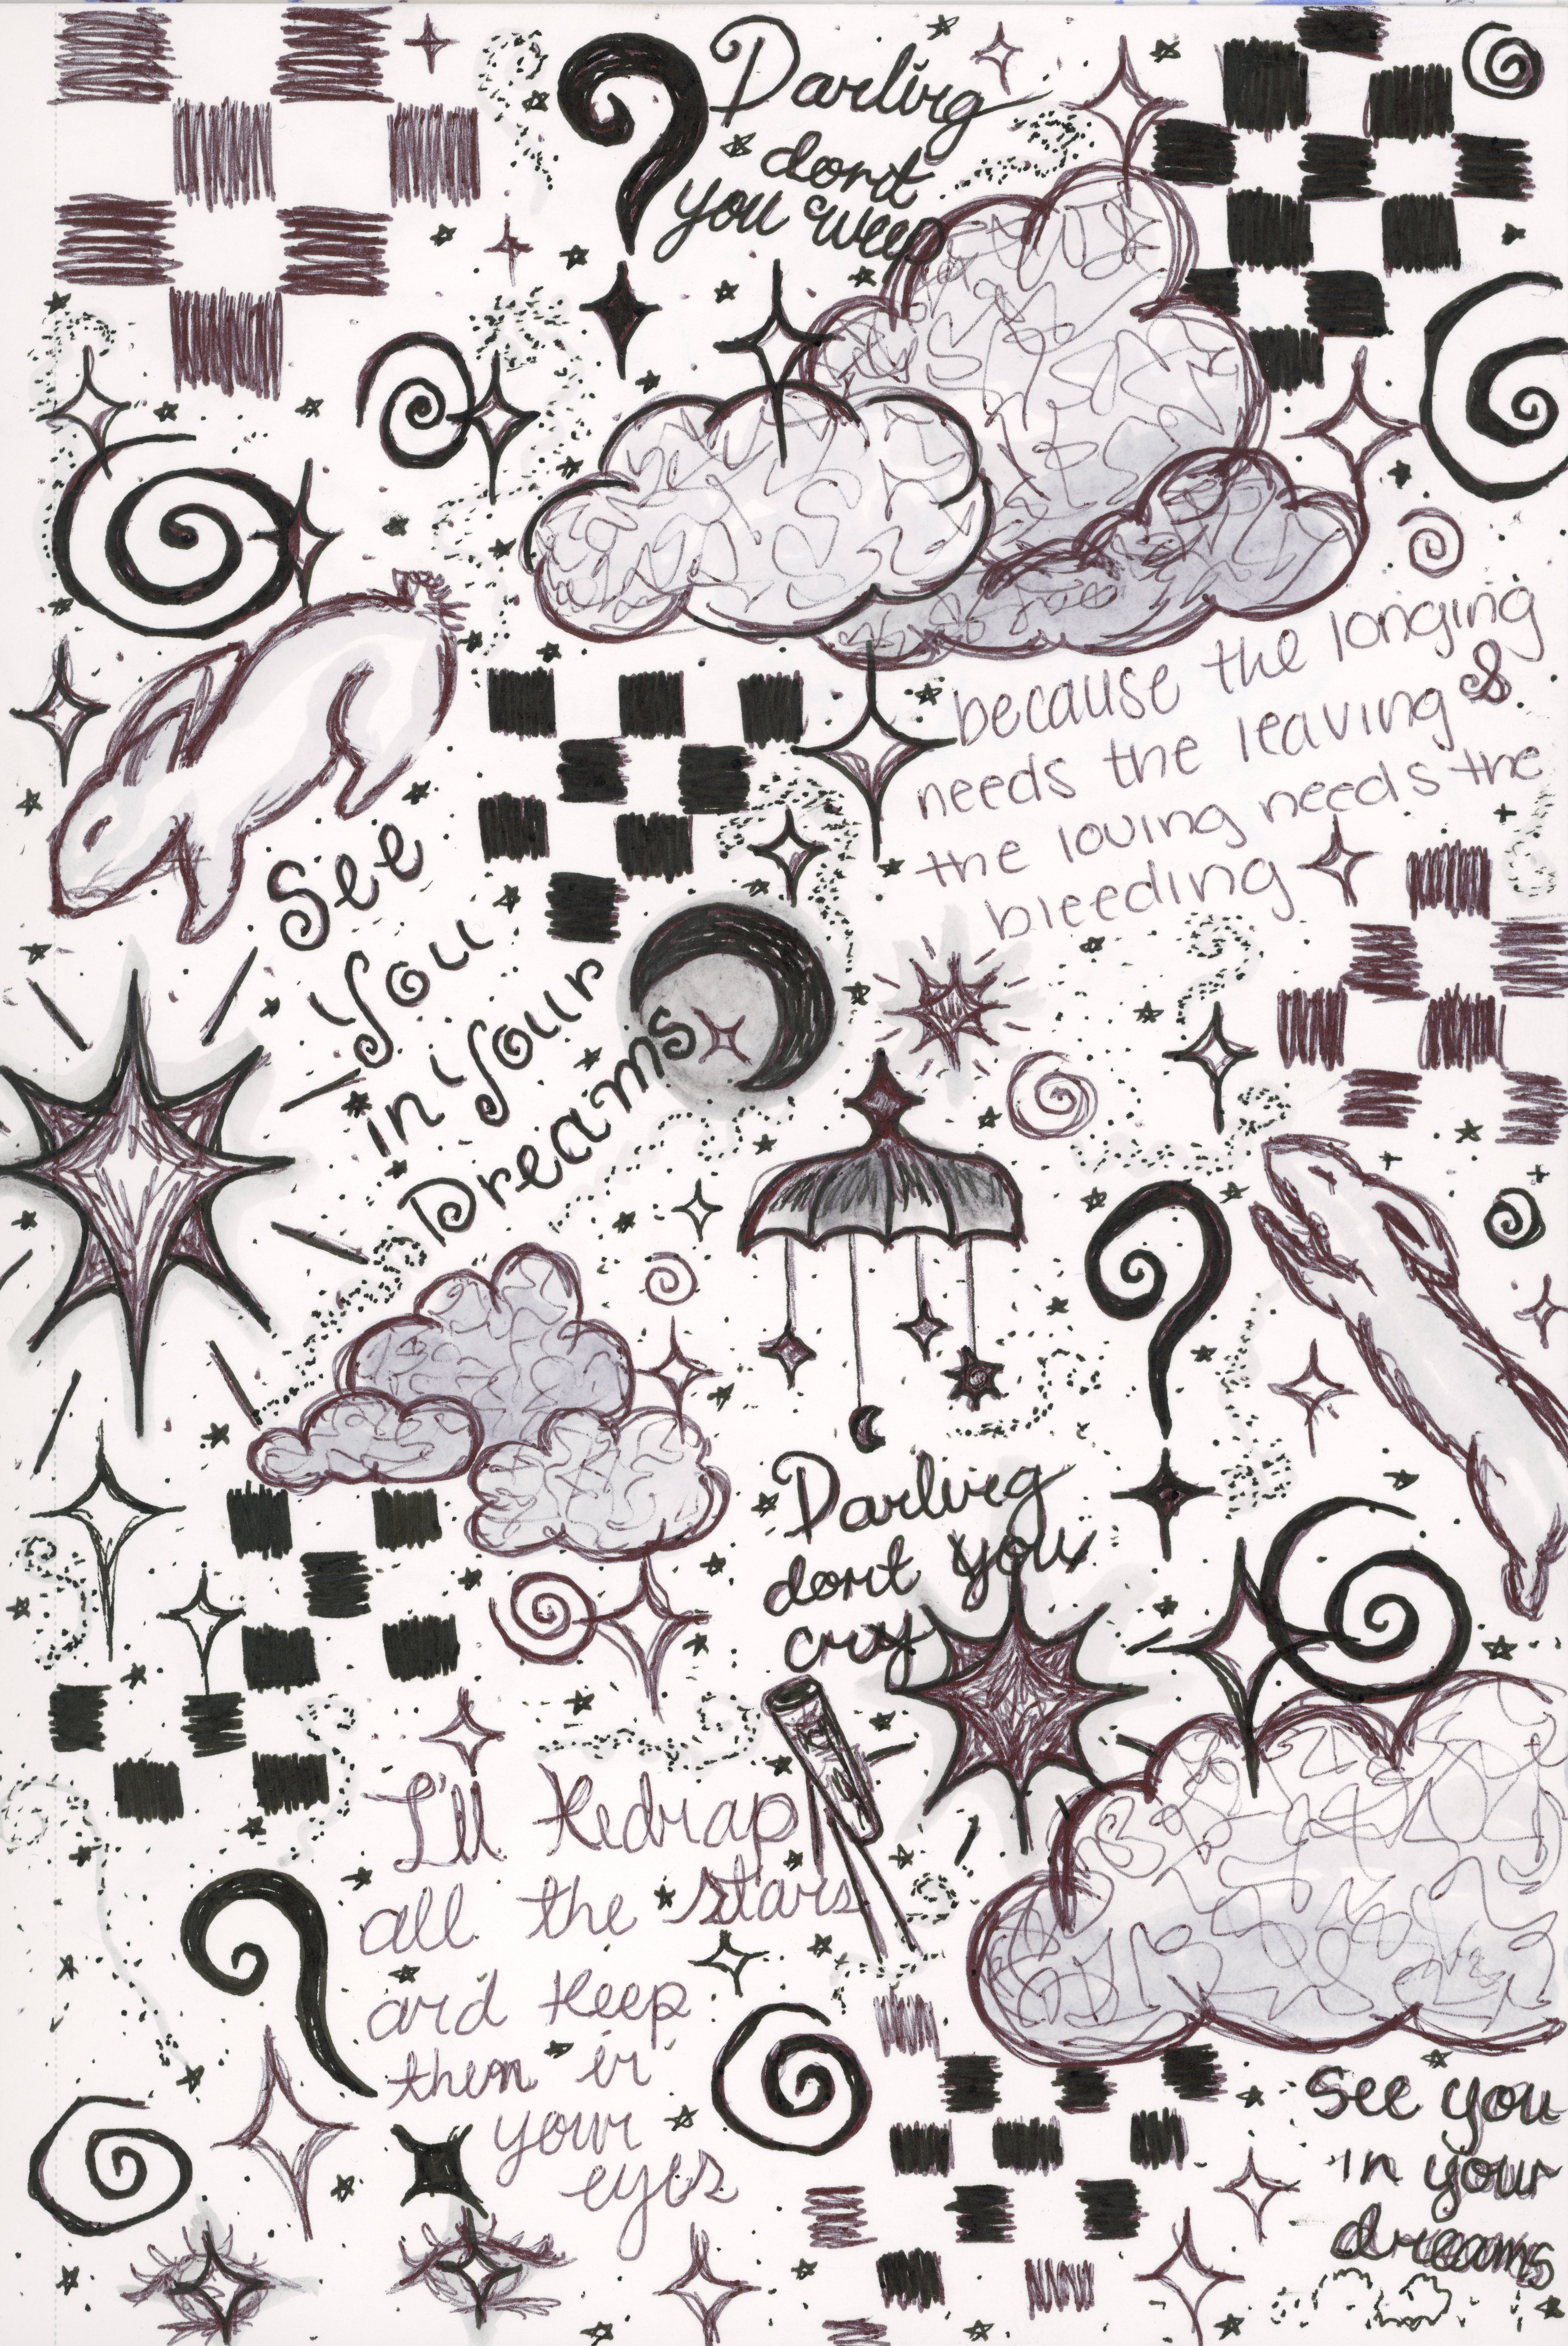 Darling
don't
you weep
because the longing
needs the leaving &
the loving needs the
bleeding
See
You
in Your
Dreams
Darling
don't you
cry
I'll kidnap
all the stars
and keep
them in
your
eyes
See you
in your
dreams